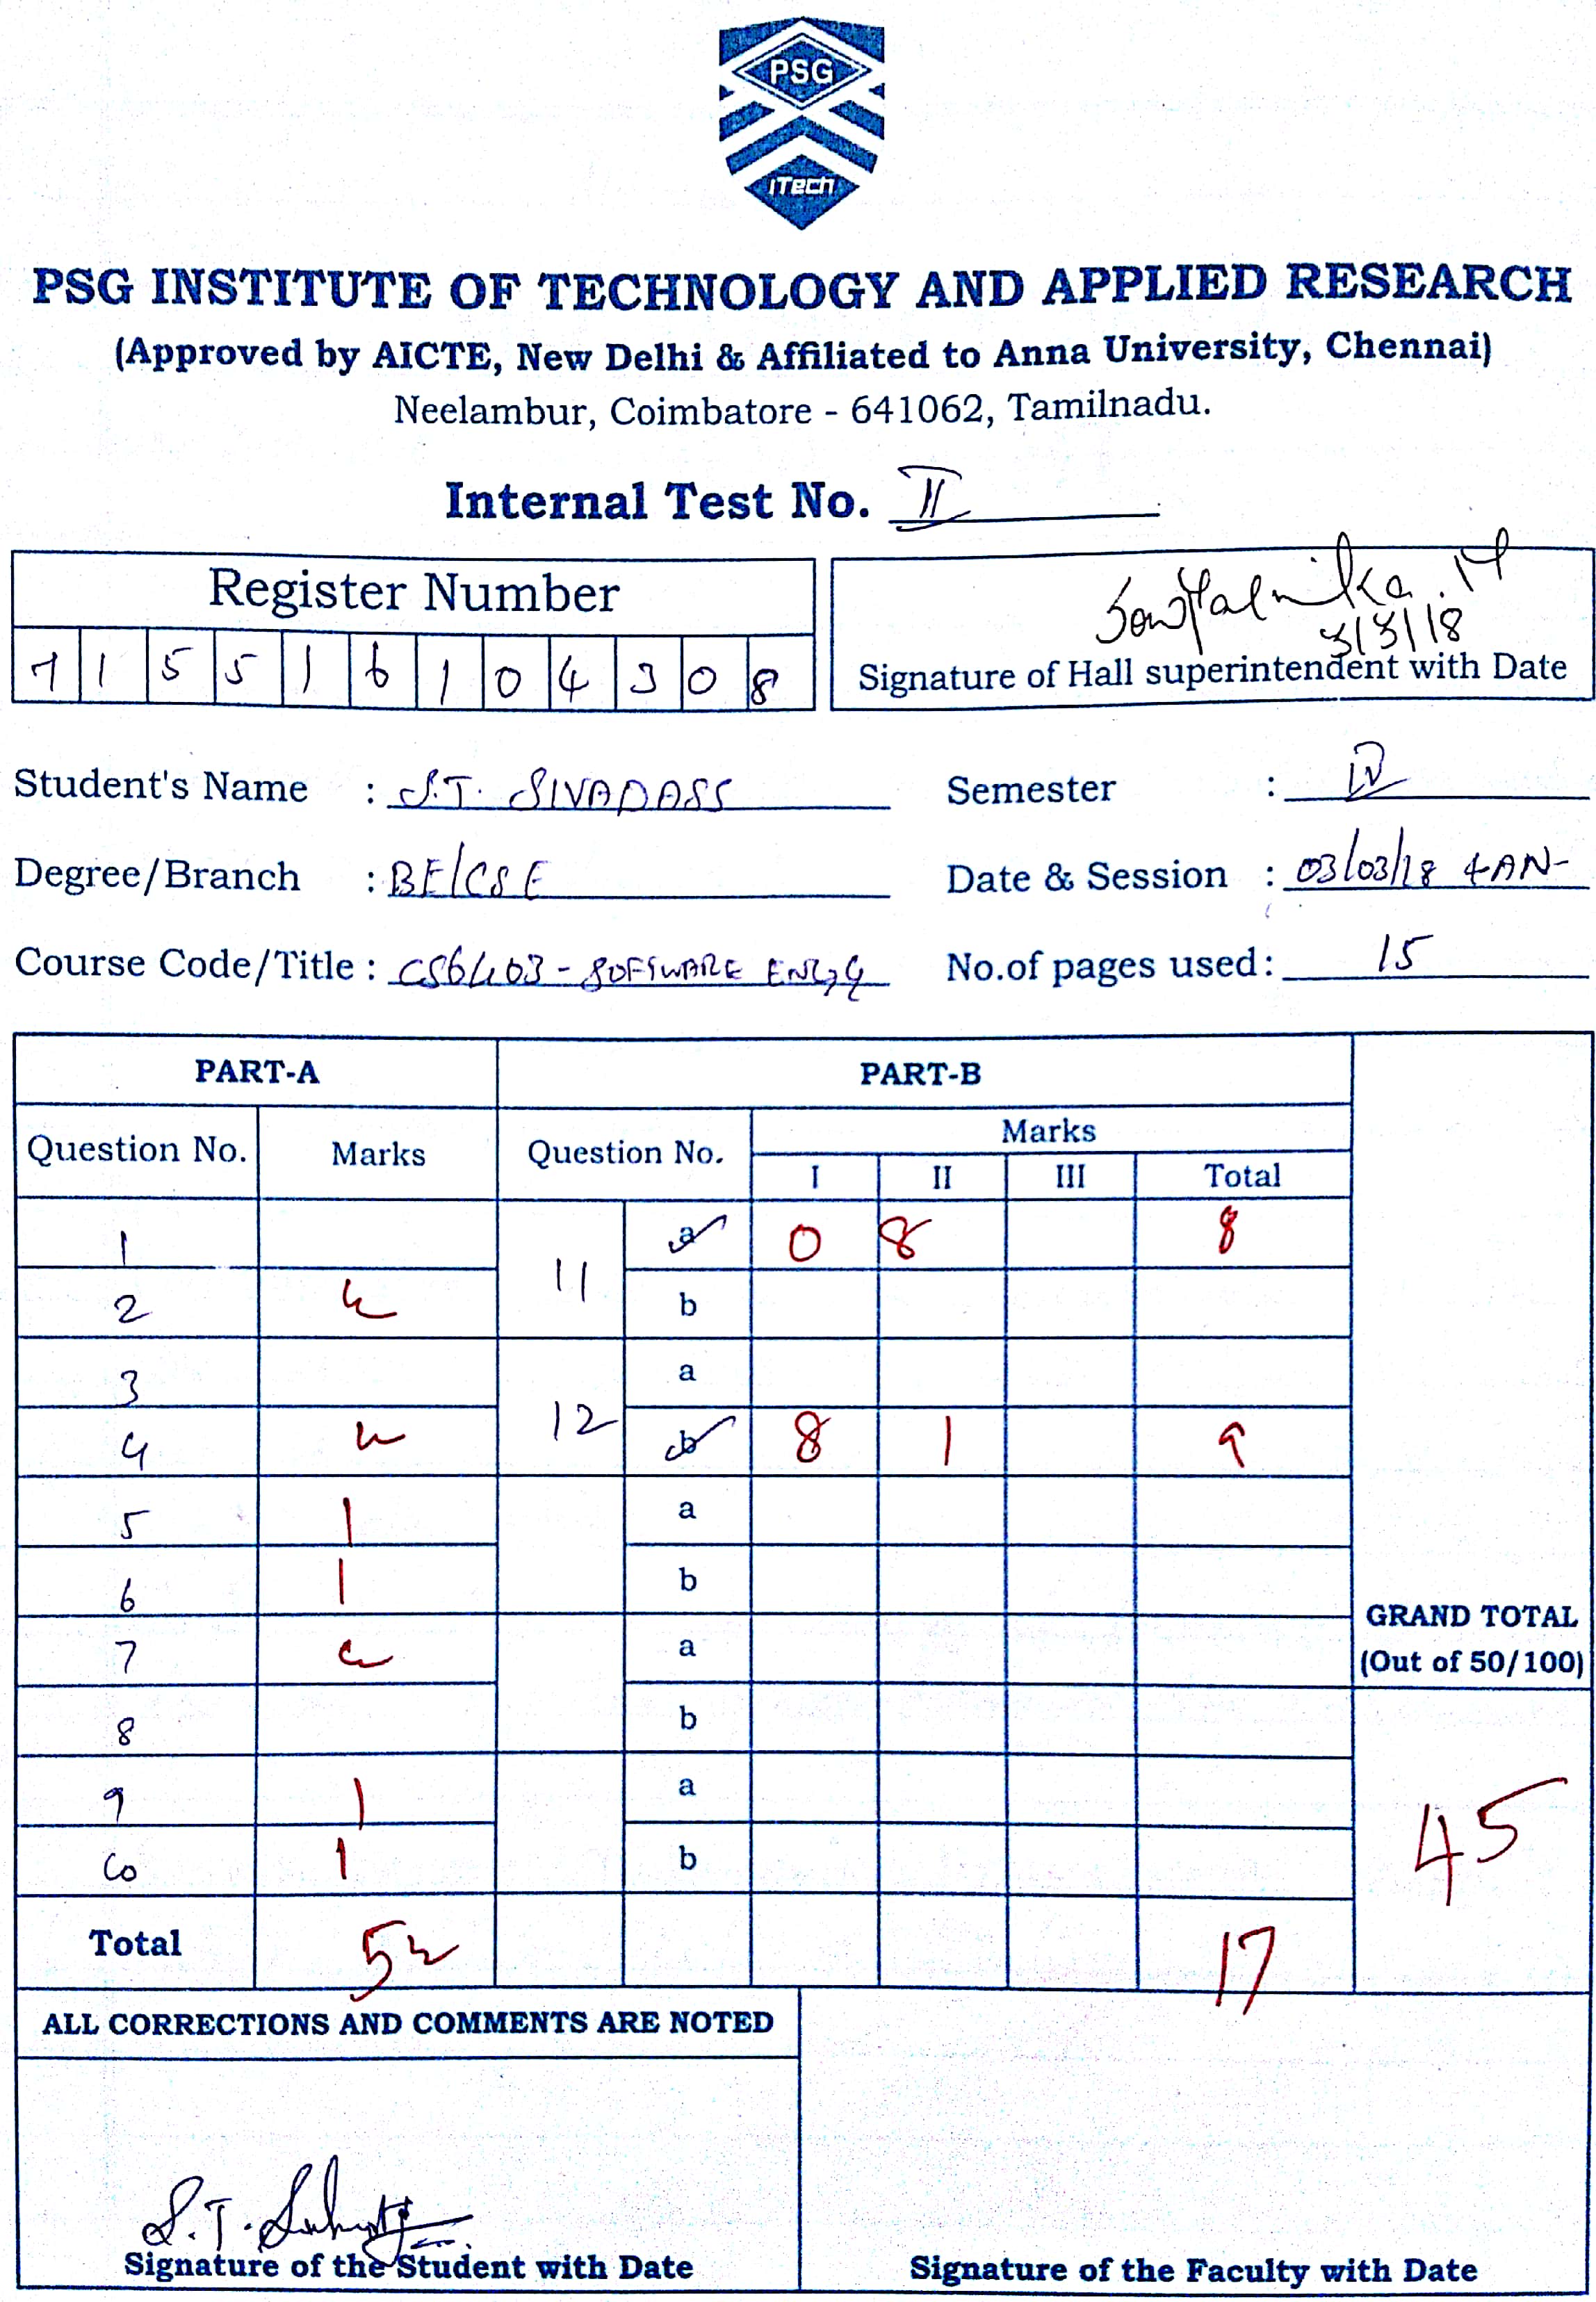 PSG
iTech
PSG INSTITUTE OF TECHNOLOGY AND APPLIED RESEARCH
(Approved by AICTE, New Delhi & Affiliated to Anna University, Chennai)
Neelambur, Coimbatore - 641062, Tamilnadu.
Internal Test No. II
Register Number
7 1 5 5 1 6 1 0 4 3 0 8
3/3/18
Signature of Hall superintendent with Date
Student's Name : S.T. SIVADASS Semester : IV
Degree/Branch : BE/CSE Date & Session : 03/03/18 & AN
Course Code/Title : CS6403 - SOFTWARE ENGG No.of pages used: 15
PART-A PART-B
Question No. Marks Question No. Marks
I II III Total
1 11 a 0 8 8
2 b
3 12 a
4 b 8 1 9
5 1 a
6 1 b
GRAND TOTAL
(Out of 50/100)
7 a
8 b
9 1 a
10 1 b
45
Total 5 17
ALL CORRECTIONS AND COMMENTS ARE NOTED
Signature of the Student with Date Signature of the Faculty with Date